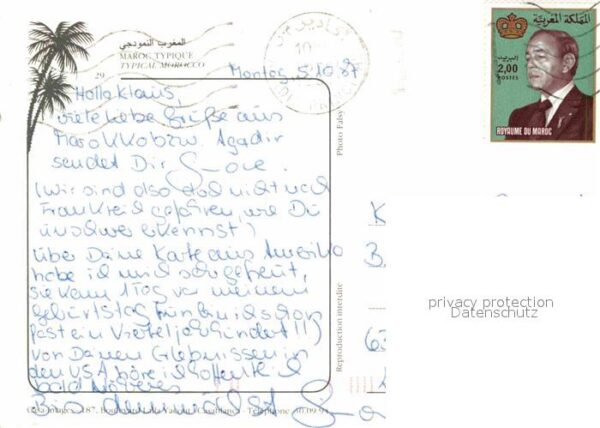 المغرب النموذجي
MAROC TYPIQUE
TYPICAL MOROCCO
29
Montag 5.10.87
Hallo Klaus,
viele liebe Grüße aus
Marokko bzw. Agadir
sendet Dir
(Wir sind also doch nicht nach
Frankreich gefahren, wie Du
unschwer erkennst)
Über Deine Karte aus Amerika
habe ich mich sehr gefreut,
sie kam 1 Tag vor meinem
Geburtstag bin ich schon
fast ein Vierteljahrhundert!!!)
Von Deinen Erlebnissen in
den USA höre ich hoffentlich
bald Näheres
Bis demnächst
Photo Falsy
Reproduction interdite
187, Boulevard Lalla Yacout, Casablanca - Téléphone
المملكة المغربية
البريد
2,00
POSTES
ROYAUME DU MAROC
K
B
6
privacy protection
Datenschutz